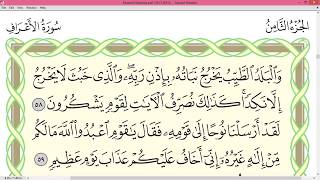 سُورَةُ الأَعْرَافِ
الجُزْءُ الثَّامِنُ
وَالْبَلَدُ الطَّيِّبُ يَخْرُجُ نَبَاتُهُ بِإِذْنِ رَبِّهِ وَالَّذِي خَبُثَ لَا يَخْرُجُ
إِلَّا نَكِدًا كَذَٰلِكَ نُصَرِّفُ الْآيَاتِ لِقَوْمٍ يَشْكُرُونَ ٥٨
لَقَدْ أَرْسَلْنَا نُوحًا إِلَىٰ قَوْمِهِ فَقَالَ يَا قَوْمِ اعْبُدُوا اللَّهَ مَا لَكُم
مِّنْ إِلَٰهٍ غَيْرُهُ إِنِّي أَخَافُ عَلَيْكُمْ عَذَابَ يَوْمٍ عَظِيمٍ ٥٩